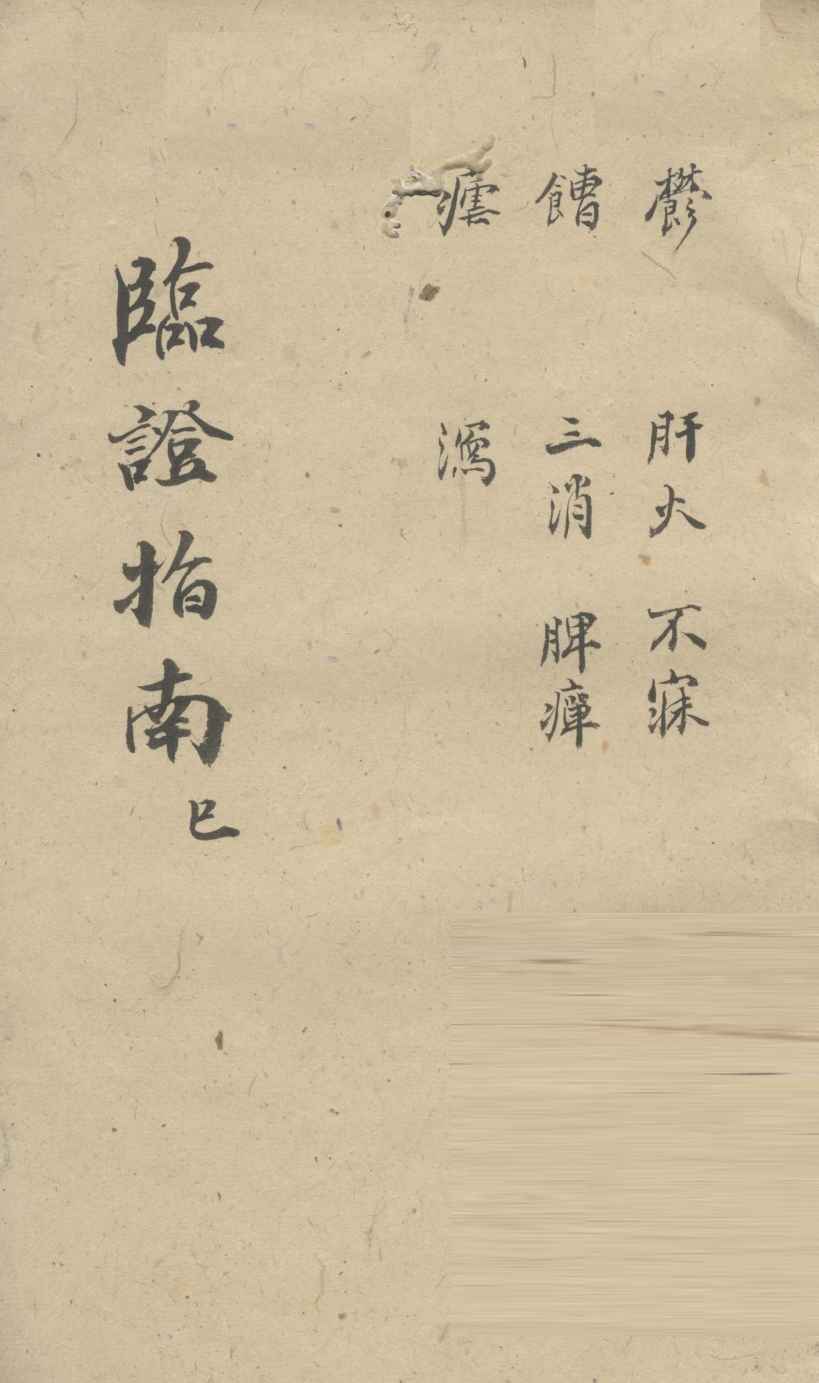 鬱　肝火　不寐
三消　脾癉
瘧　瀉
臨證指南 巳